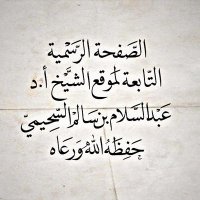 الصَّفحة الرَّسْمِية
التّابعة لموقع الشَّيْخ أ.د
عَبدالسَّلام بن سَالم السّحيميّ
حَفِظَهُ اللهُ وَرَعَاه